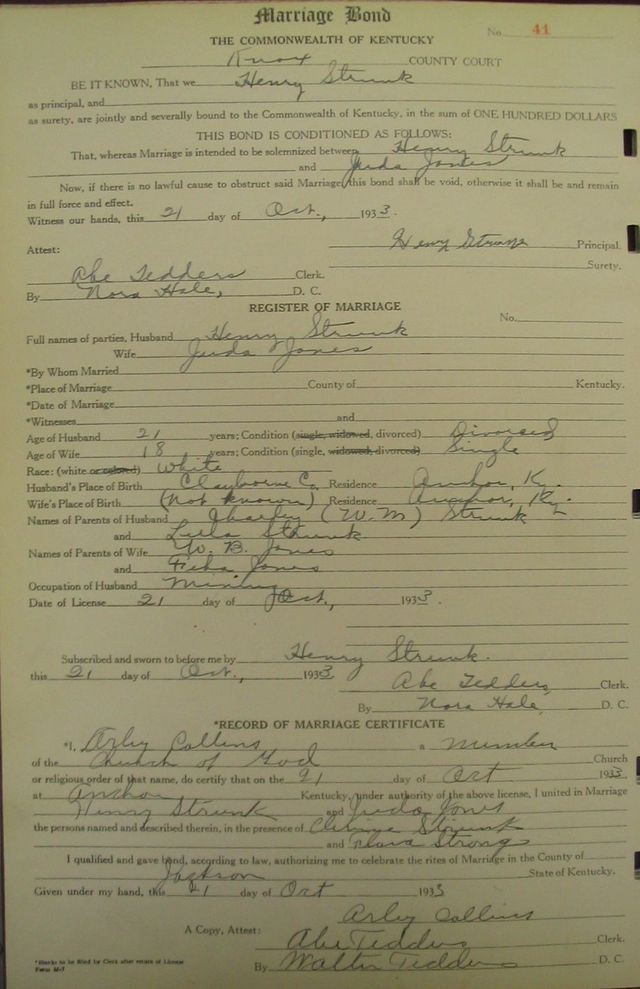 Marriage Bond
No. 41
THE COMMONWEALTH OF KENTUCKY
Knox COUNTY COURT
BE IT KNOWN, That we Henry Strunk
as principal, and
as surety, are jointly and severally bound to the Commonwealth of Kentucky, in the sum of ONE HUNDRED DOLLARS
THIS BOND IS CONDITIONED AS FOLLOWS:
That, whereas Marriage is intended to be solemnized between Henry Strunk
and Juda Jones
Now, if there is no lawful cause to obstruct said Marriage, this bond shall be void, otherwise it shall be and remain
in full force and effect.
Witness our hands, this 21 day of Oct., 1933.
Henry Strunk Principal.
Attest:
Surety.
Abe Tedders Clerk.
By Nora Hale, D. C.
REGISTER OF MARRIAGE
No.
Full names of parties, Husband Henry Strunk
Wife Juda Jones
*By Whom Married
*Place of Marriage County of Kentucky.
*Date of Marriage
*Witnesses and
Age of Husband 21 years; Condition (single, widowed, divorced) Divorced
Age of Wife 18 years; Condition (single, widowed, divorced) Single
Race: (white or colored) White
Husband's Place of Birth Clayborne Co. Residence Anchor, Ky.
Wife's Place of Birth (Not known) Residence Anchor, Ky.
Names of Parents of Husband Charley (W.M) Strunk
and Lula Strunk
Names of Parents of Wife W. B. Jones
and Jones
Occupation of Husband Mining
Date of License 21 day of Oct., 1933.
Subscribed and sworn to before me by Henry Strunk.
this 21 day of Oct., 1933
Abe Tedders, Clerk.
By Nora Hale, D. C.
*RECORD OF MARRIAGE CERTIFICATE
*I, Arley Collins a member
of the Church of God Church
or religious order of that name, do certify that on the 21 day of Oct 1933
at Anchor Kentucky, under authority of the above license, I united in Marriage
Henry Strunk and Juda Jones
the persons named and described therein, in the presence of Strunk
and Strong
I qualified and gave bond, according to law, authorizing me to celebrate the rites of Marriage in the County of
Jackson State of Kentucky.
Given under my hand, this 21 day of Oct 1933
Arley Collins
A Copy, Attest: Abe Tedders Clerk.
By Walter Tedders D. C.
*Blanks to be filled by Clerk after return of License
Form M-1